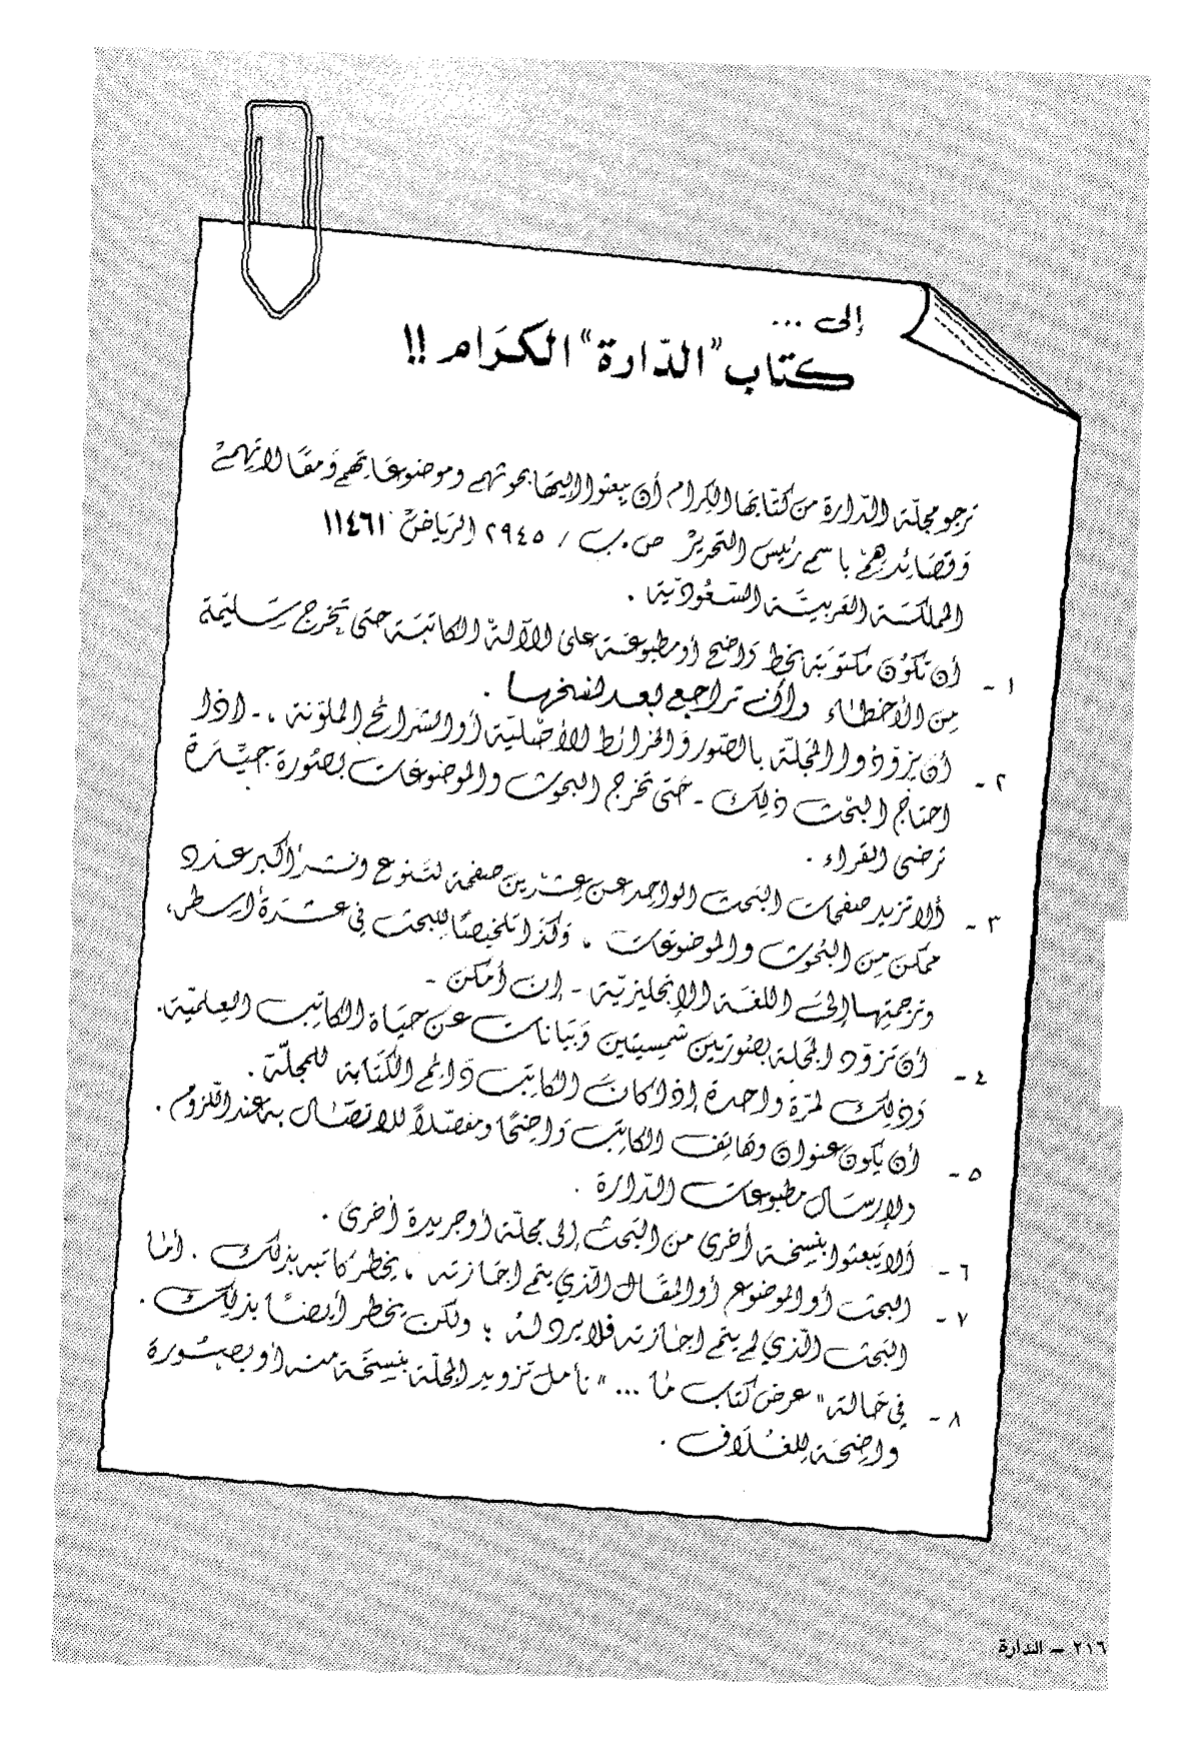 إلى ...
كتاب "الدّارة" الكرَام !!
ترجو مجلّة الدّارة من كتّابها الكِرام أن يبعثوا إليهَا بحوثهم وموضوعَاتهم وَمقَالاتِهمْ
وَقصَائِدهِمْ باسم رئيس التحريرْ ص.ب / ٢٩٤٥ الريَاضْ ١١٤٦١
المملكَة العَربيَّة السّعُوديّة .
١ - أن تكوُن مكتوبَة بخط وَاضِح أو مطبوعَة على الآلة الكاتبَة حتى تخرج سَليمَة
مِن الأخطاء وأن تراجع بعد نسخها .
٢ - أن يزوّدوا المجَلّة بالصّور وَالخرائط الأصْليّة أو الشرائح الملوّنة ، - اذا
احتاج البحْث ذلِك - حَتى تخرج البحوث والموضوعَات بصُورة جيِّدة
ترضى القراء .
٣ - ألا تزيد صفحات البَحث الواحِد عن عِشرين صفحة لتنوع ونشر أكبر عدد
ممكن مِن البُحوث والموضوعَات ، وَكذا تلخيصًا للبحث في عشرَة أسطر،
وترجمتِها إلىَ اللغَة الإنجليزيّة - إن أمكنَ -
٤ - أن تزوّد المجَلة بصُورتين شمسيتين وَبيَانات عَن حيَاة الكاتِب العِلميّة.
وَذلِك لمرّة واحدة إذا كانَ الكاتِب دَائم الكتَابة للمجلّة .
٥ - أن يكون عنوان وهَاتِف الكاتِب وَاضِحًا ومفصّلاً للاتصَال به عند اللّزوم .
ولإرسَال مطبوعَات الدّارة .
٦ - ألا يَبعثوا بنسخة أخرى من البَحث إلى مجلّة أو جريدة أخرىَ .
٧ - البحث أو الموضوع أو المقَال الّذي يتم اجَازته ، يخطر كاتبه بذلك . أمّا
البَحث الّذي لم يتم اجَازته فلا يرد له ؛ ولكن يخطر أيضًا بذلِك .
٨ - في حَالة " عرض كتاب مَا ... " نأمل تزويد المجلّة بنسخَة منه أو بصُورة
واضِحَة لِلغُلَاف .
٢١٦ - الدارة